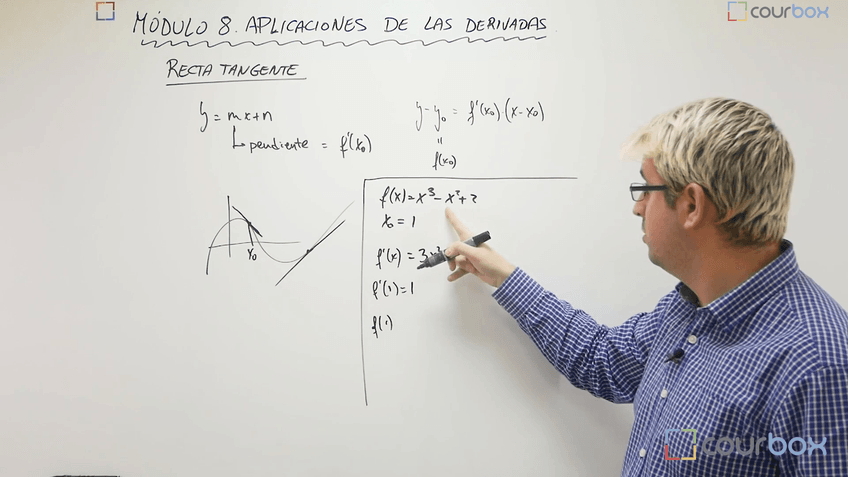 MÓDULO 8. APLICACIONES DE LAS DERIVADAS
courbox
RECTA TANGENTE
y = mx+n
pendiente = f'(x₀)
y-y₀ = f'(x₀)·(x-x₀)
"
f(x₀)
x₀
f(x)=x³-x²+2
x₀ = 1
f'(x) = 3x²
f'(1)=1
f(1)
courbox